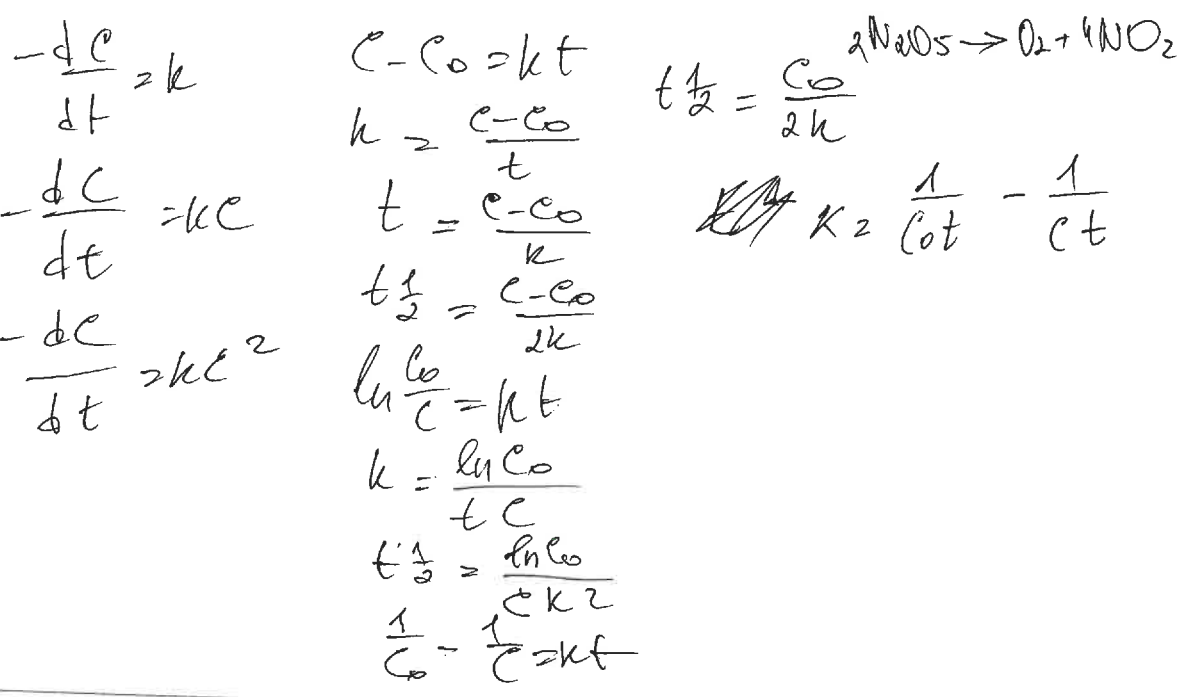 -dC/dt = k
-dC/dt = kC
-dC/dt = kC²
C - C₀ = kt
k = (C - C₀)/t
t = (C - C₀)/k
t 1/2 = (C - C₀)/2k
ln C₀/C = kt
k = ln C₀/t C
t 1/2 = ln C₀/C k 2
1/C₀ - 1/C = kt
2N2O5 → O2 + 4NO2
t 1/2 = C₀/2k
K = 1/C₀t - 1/Ct